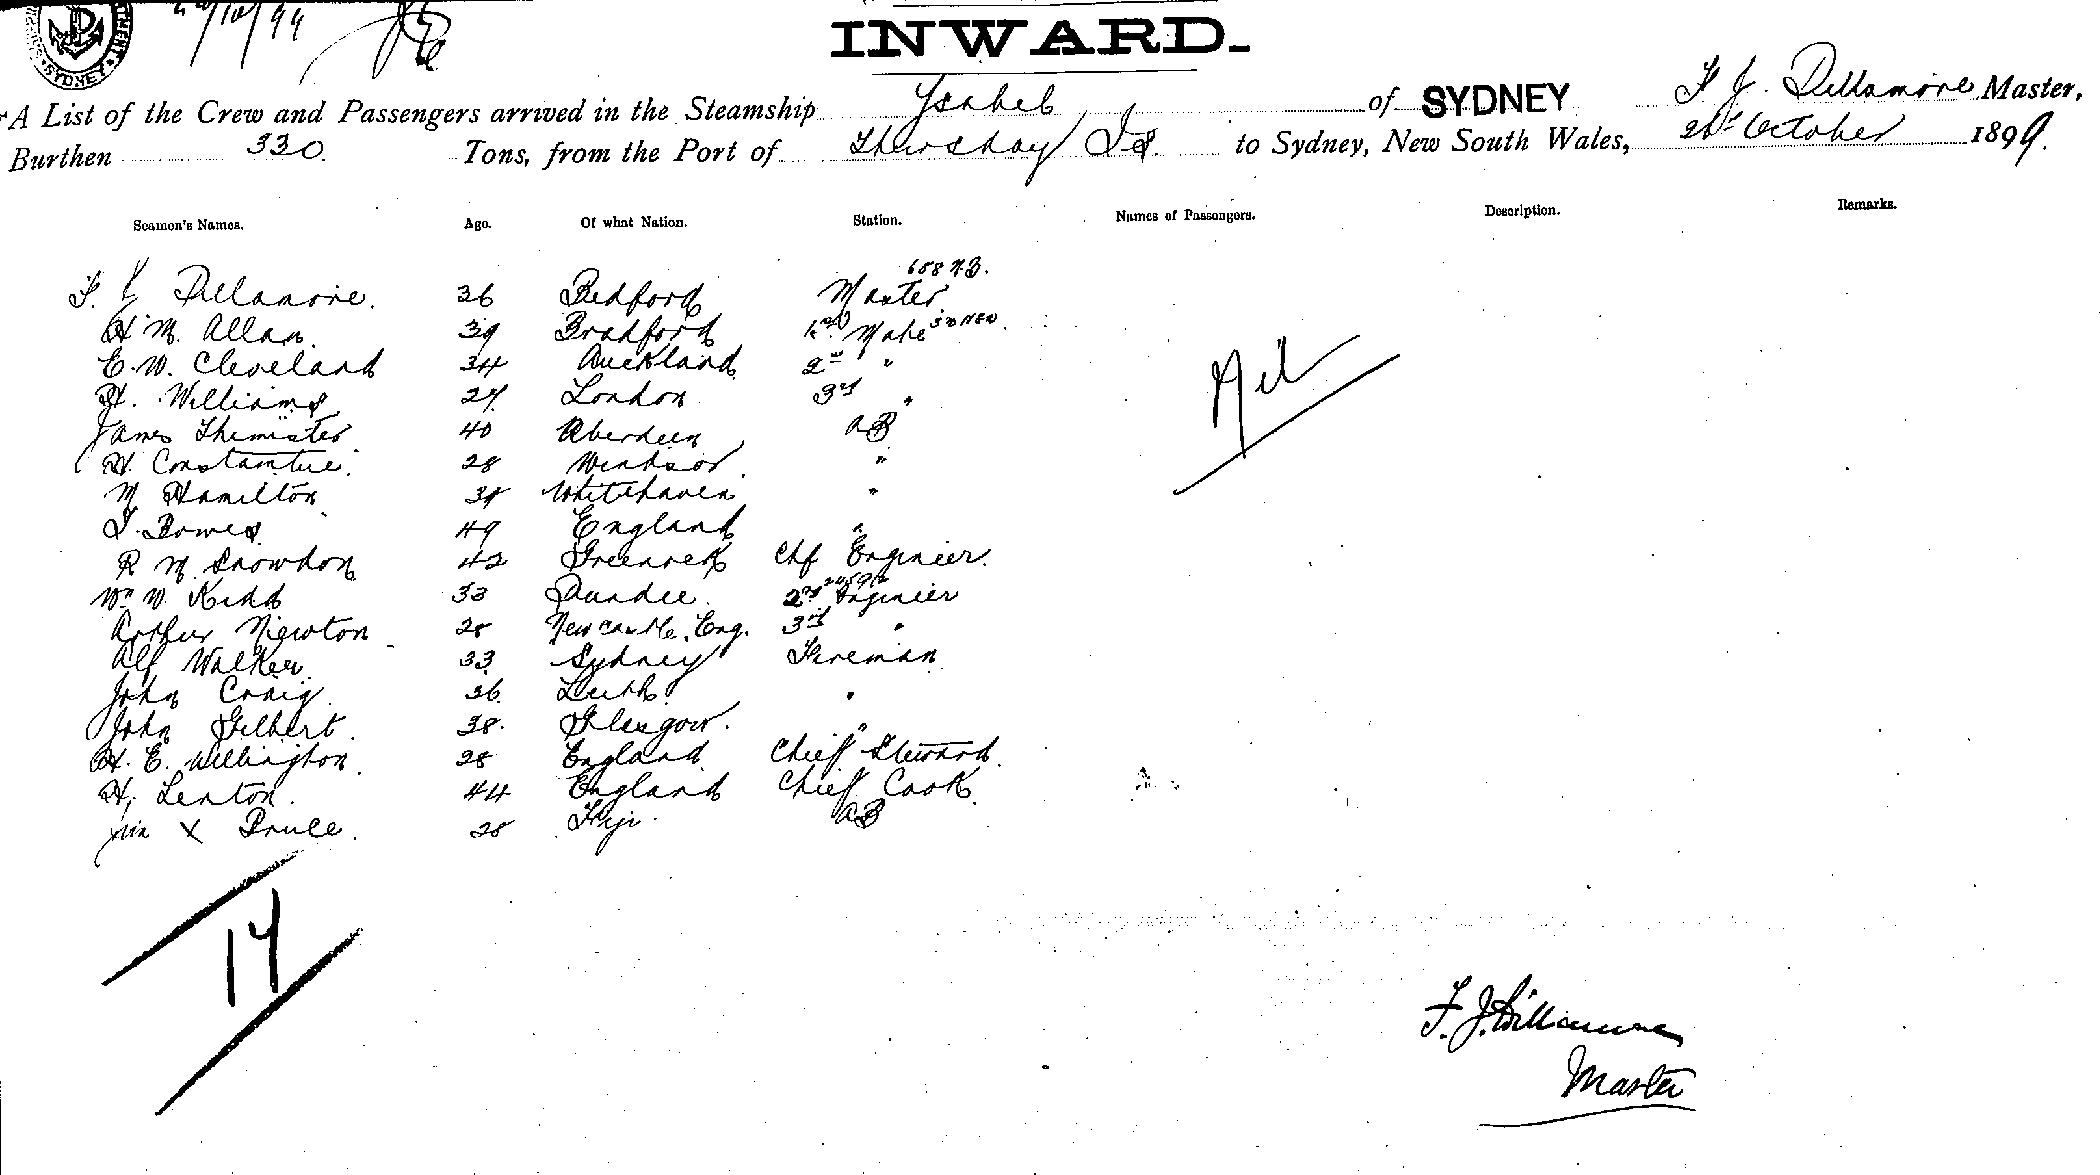 SYDNEY
INWARD.
A List of the Crew and Passengers arrived in the Steamship Ysabel of SYDNEY F J. Dillamore Master,
Burthen 330 Tons, from the Port of Thursday Is. to Sydney, New South Wales, October 1899.
Seamen's Names. Age. Of what Nation. Station. Names of Passengers. Description. Remarks.
F. J Dillamore. 36 Bedford Master
H M. Allan. 39 Bradford Mate
E. W. Cleveland 34 Auckland 2nd "
H. Williams 27 London 3rd "
James Themister 40 Aberdeen AB
H. Constantine. 28 Windsor "
M Hamilton Whitehaven "
Nil
49 England "
R M Snowdon 42 Greenock Chf Enginier.
Wm W. Kidd 33 Dundee 2nd Enginier
Arthur Newton 28 Newcastle, Eng. 3rd "
Alf Walker 33 Sydney Fireman
John Craig 36 Leith "
John Gilbert. 38. Glasgow. "
H. E. Willington 28 England Chief Steward.
H, Lenton. 44 England Chief Cook
X Bruce. 28 Fiji. AB
17
F. J. Dillamore
Master